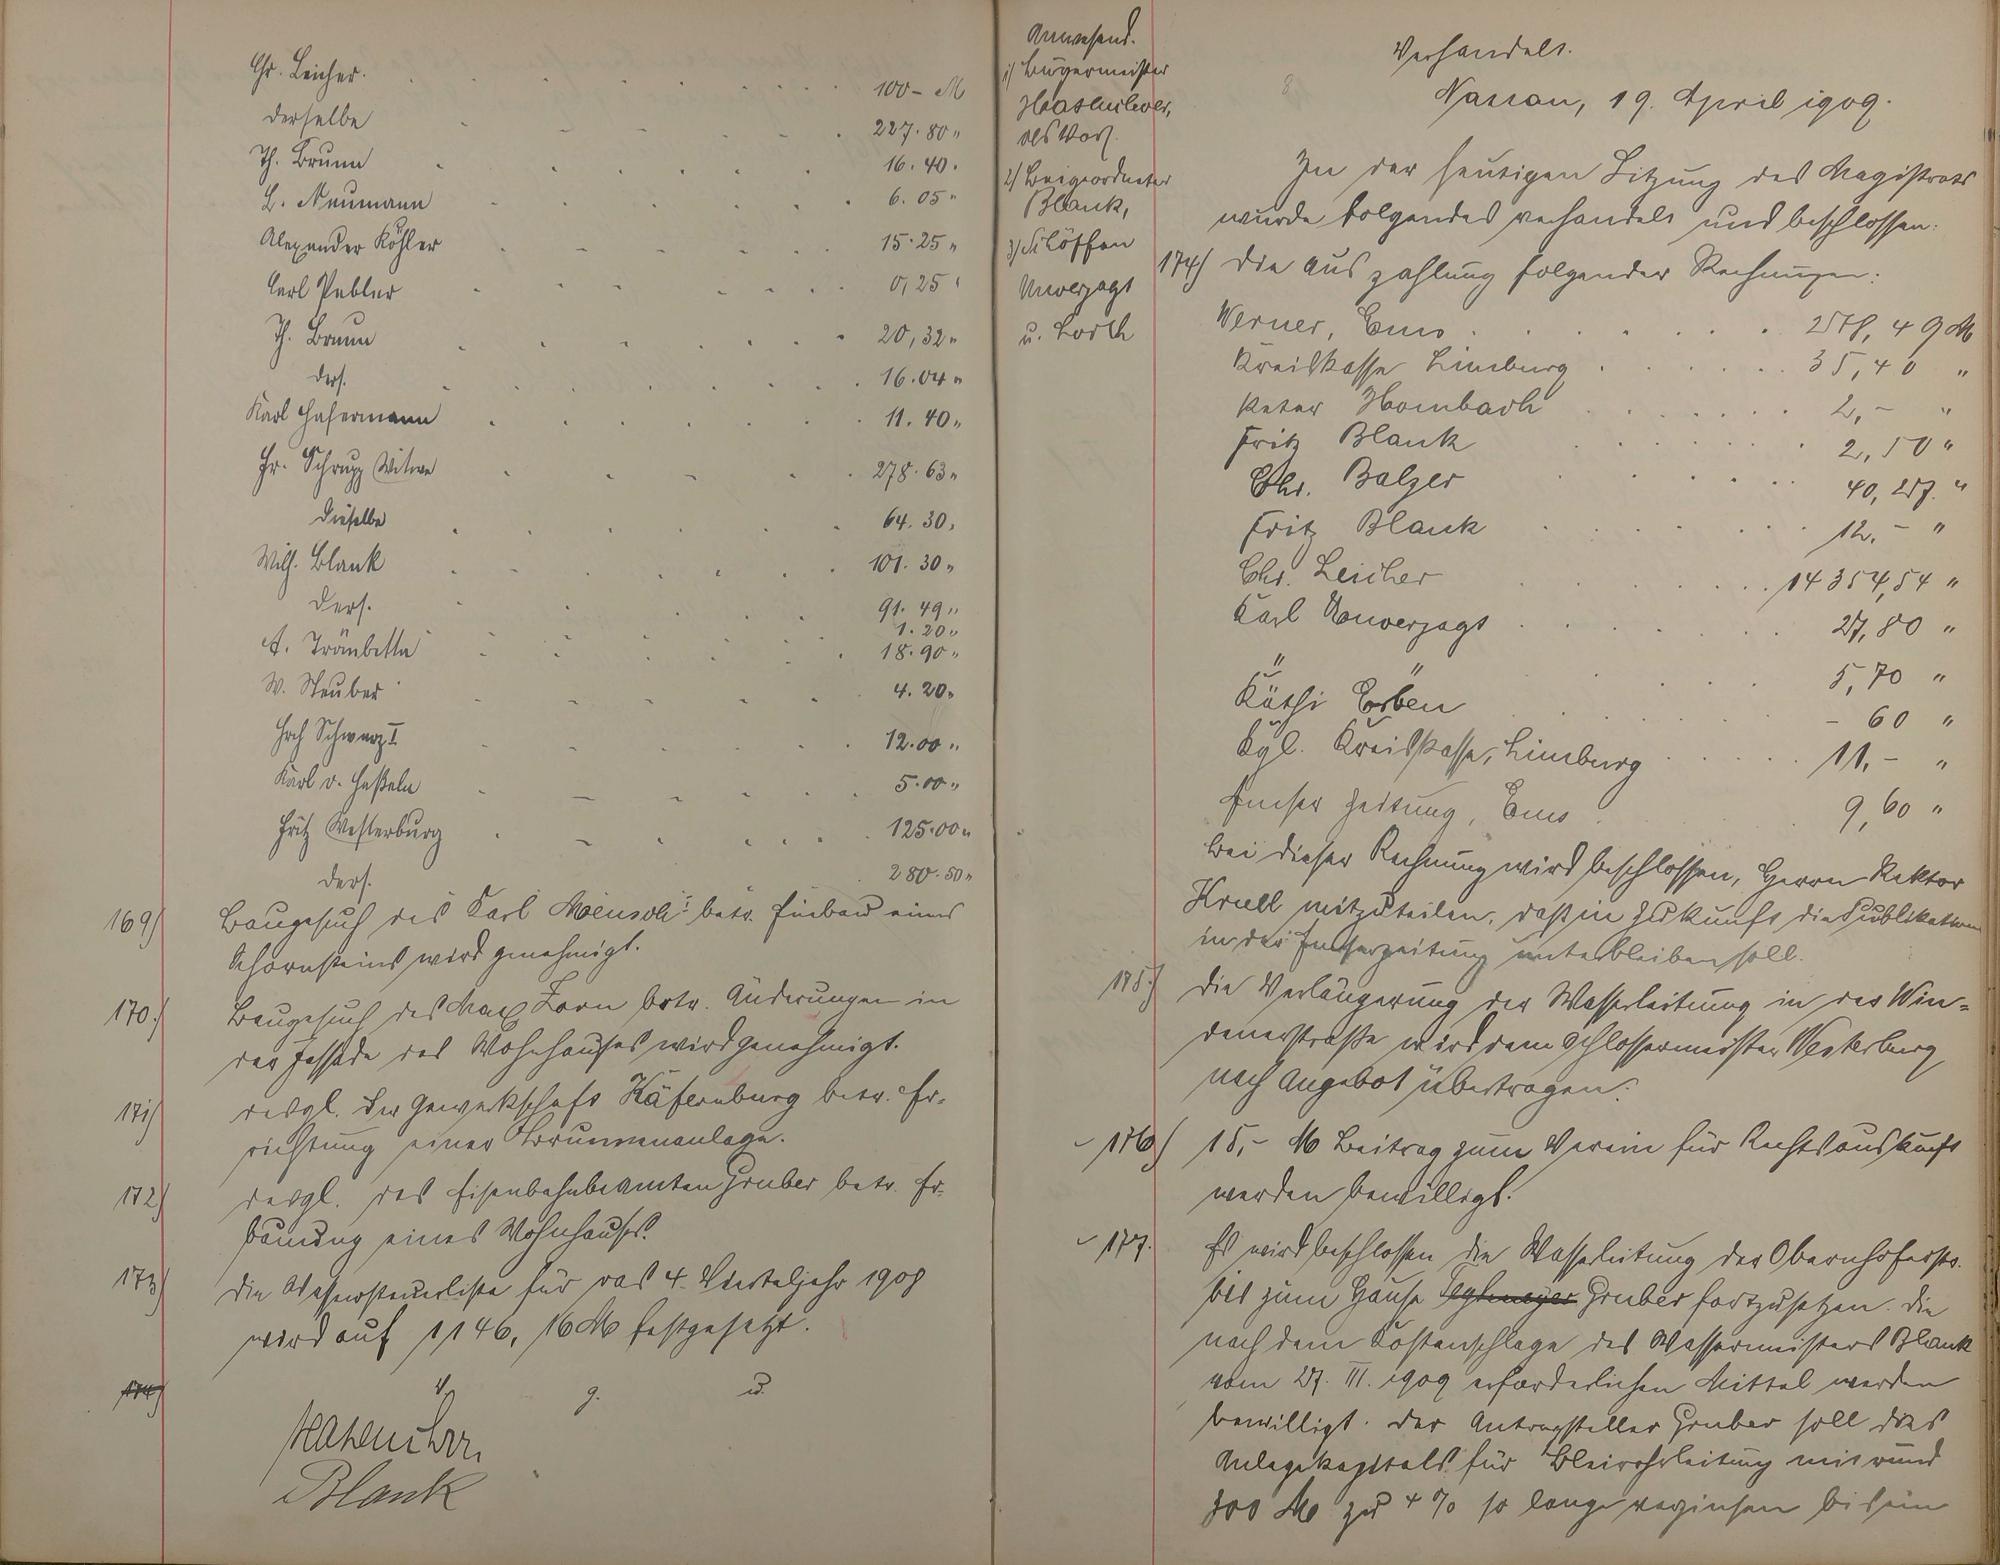 Chr. Leicher. 100 – M
derselbe 227.80 "
Th. Bruun 16.40.
L. Neumann 6.05 "
Alexander Köhler 15.25 "
Carl Pebler 0,25 "
Th. Bruun 20,32 "
ders. 16.04 "
Karl Hafermann 11.40 "
Fr. Schrupp Witwe 278.63 "
dieselbe 64.30 "
Wilh. Blank 101.30 "
ders. 91.49 "
1.20 "
A. Trombetta 18.90 "
W. Steuber 4.20 "
Hrch Schwarz I 12.00 "
Karl v. Haßeln 5.00 "
Fritz Westerburg 125.00 "
ders. 280.50 "
169) Baugesuch des Karl Mensch I betr. Einbau eines
Schornsteins wird genehmigt.
170) Baugesuch des Max Zorn betr. Änderungen in
der Fassade des Wohnhauses wird genehmigt.
171) desgl. der Gewerkschaft Käfernburg betr. Er-
richtung einer Brunnenanlage.
172) desgl. des Eisenbahnbeamten Gruber betr. Er-
bauung eines Wohnhauses.
173) Die Wassersteuerliste für das 4. Vierteljahr 1908
wird auf 1146,16 M festgesetzt.
174)
v. g. u.
Hasenclever
Blank
Anwesend.
1) Bürgermeister
Hasenclever,
als Vors.
2) Beigeordneter
Blank,
3) Schöffen
Unverzagt
u. Lorch
Verhandelt.
Nassau, 19. April 1909.
In der heutigen Sitzung des Magistrats
wurde folgendes verhandelt und beschlossen:
174) Die Auszahlung folgender Rechnungen:
Werner, Ems 258,49 M
Kreiskasse Limburg 35,40 "
Peter Hombach 2,– "
Fritz Blank 2,50 "
Chr. Balzer 40,27 "
Fritz Blank 12,– "
Chr. Leicher 14354,54 "
Karl Unverzagt 27,80 "
" " 5,70 "
Käthi Erben – 60 "
Kgl. Kreiskasse, Limburg 11,– "
Emser Zeitung, Ems 9,60 "
Bei dieser Rechnung wird beschlossen, Herrn Rektor
Krull mitzuteilen, daß in Zukunft die Publikation
in der Emserzeitung unterbleiben soll.
175) Die Verlängerung der Wasserleitung in der Win=
denerstraße wird dem Schlossermeister Westerburg
nach Angebot übertragen.
176) 15,– M Beitrag zum Verein für Rechtsauskunft
werden bewilligt.
177. Es wird beschlossen die Wasserleitung der Obernhoferstr.
bis zum Hause Gruber fortzusetzen. Die
nach dem Kostenschlage des Wassermeisters Blank
vom 27. III. 1909 erforderlichen Mittel werden
bewilligt. Der Antragsteller Gruber soll das
Anlagekapitals für Bleirohrleitung mit rund
300 M zu 4 % so lange verzinsen bis ein